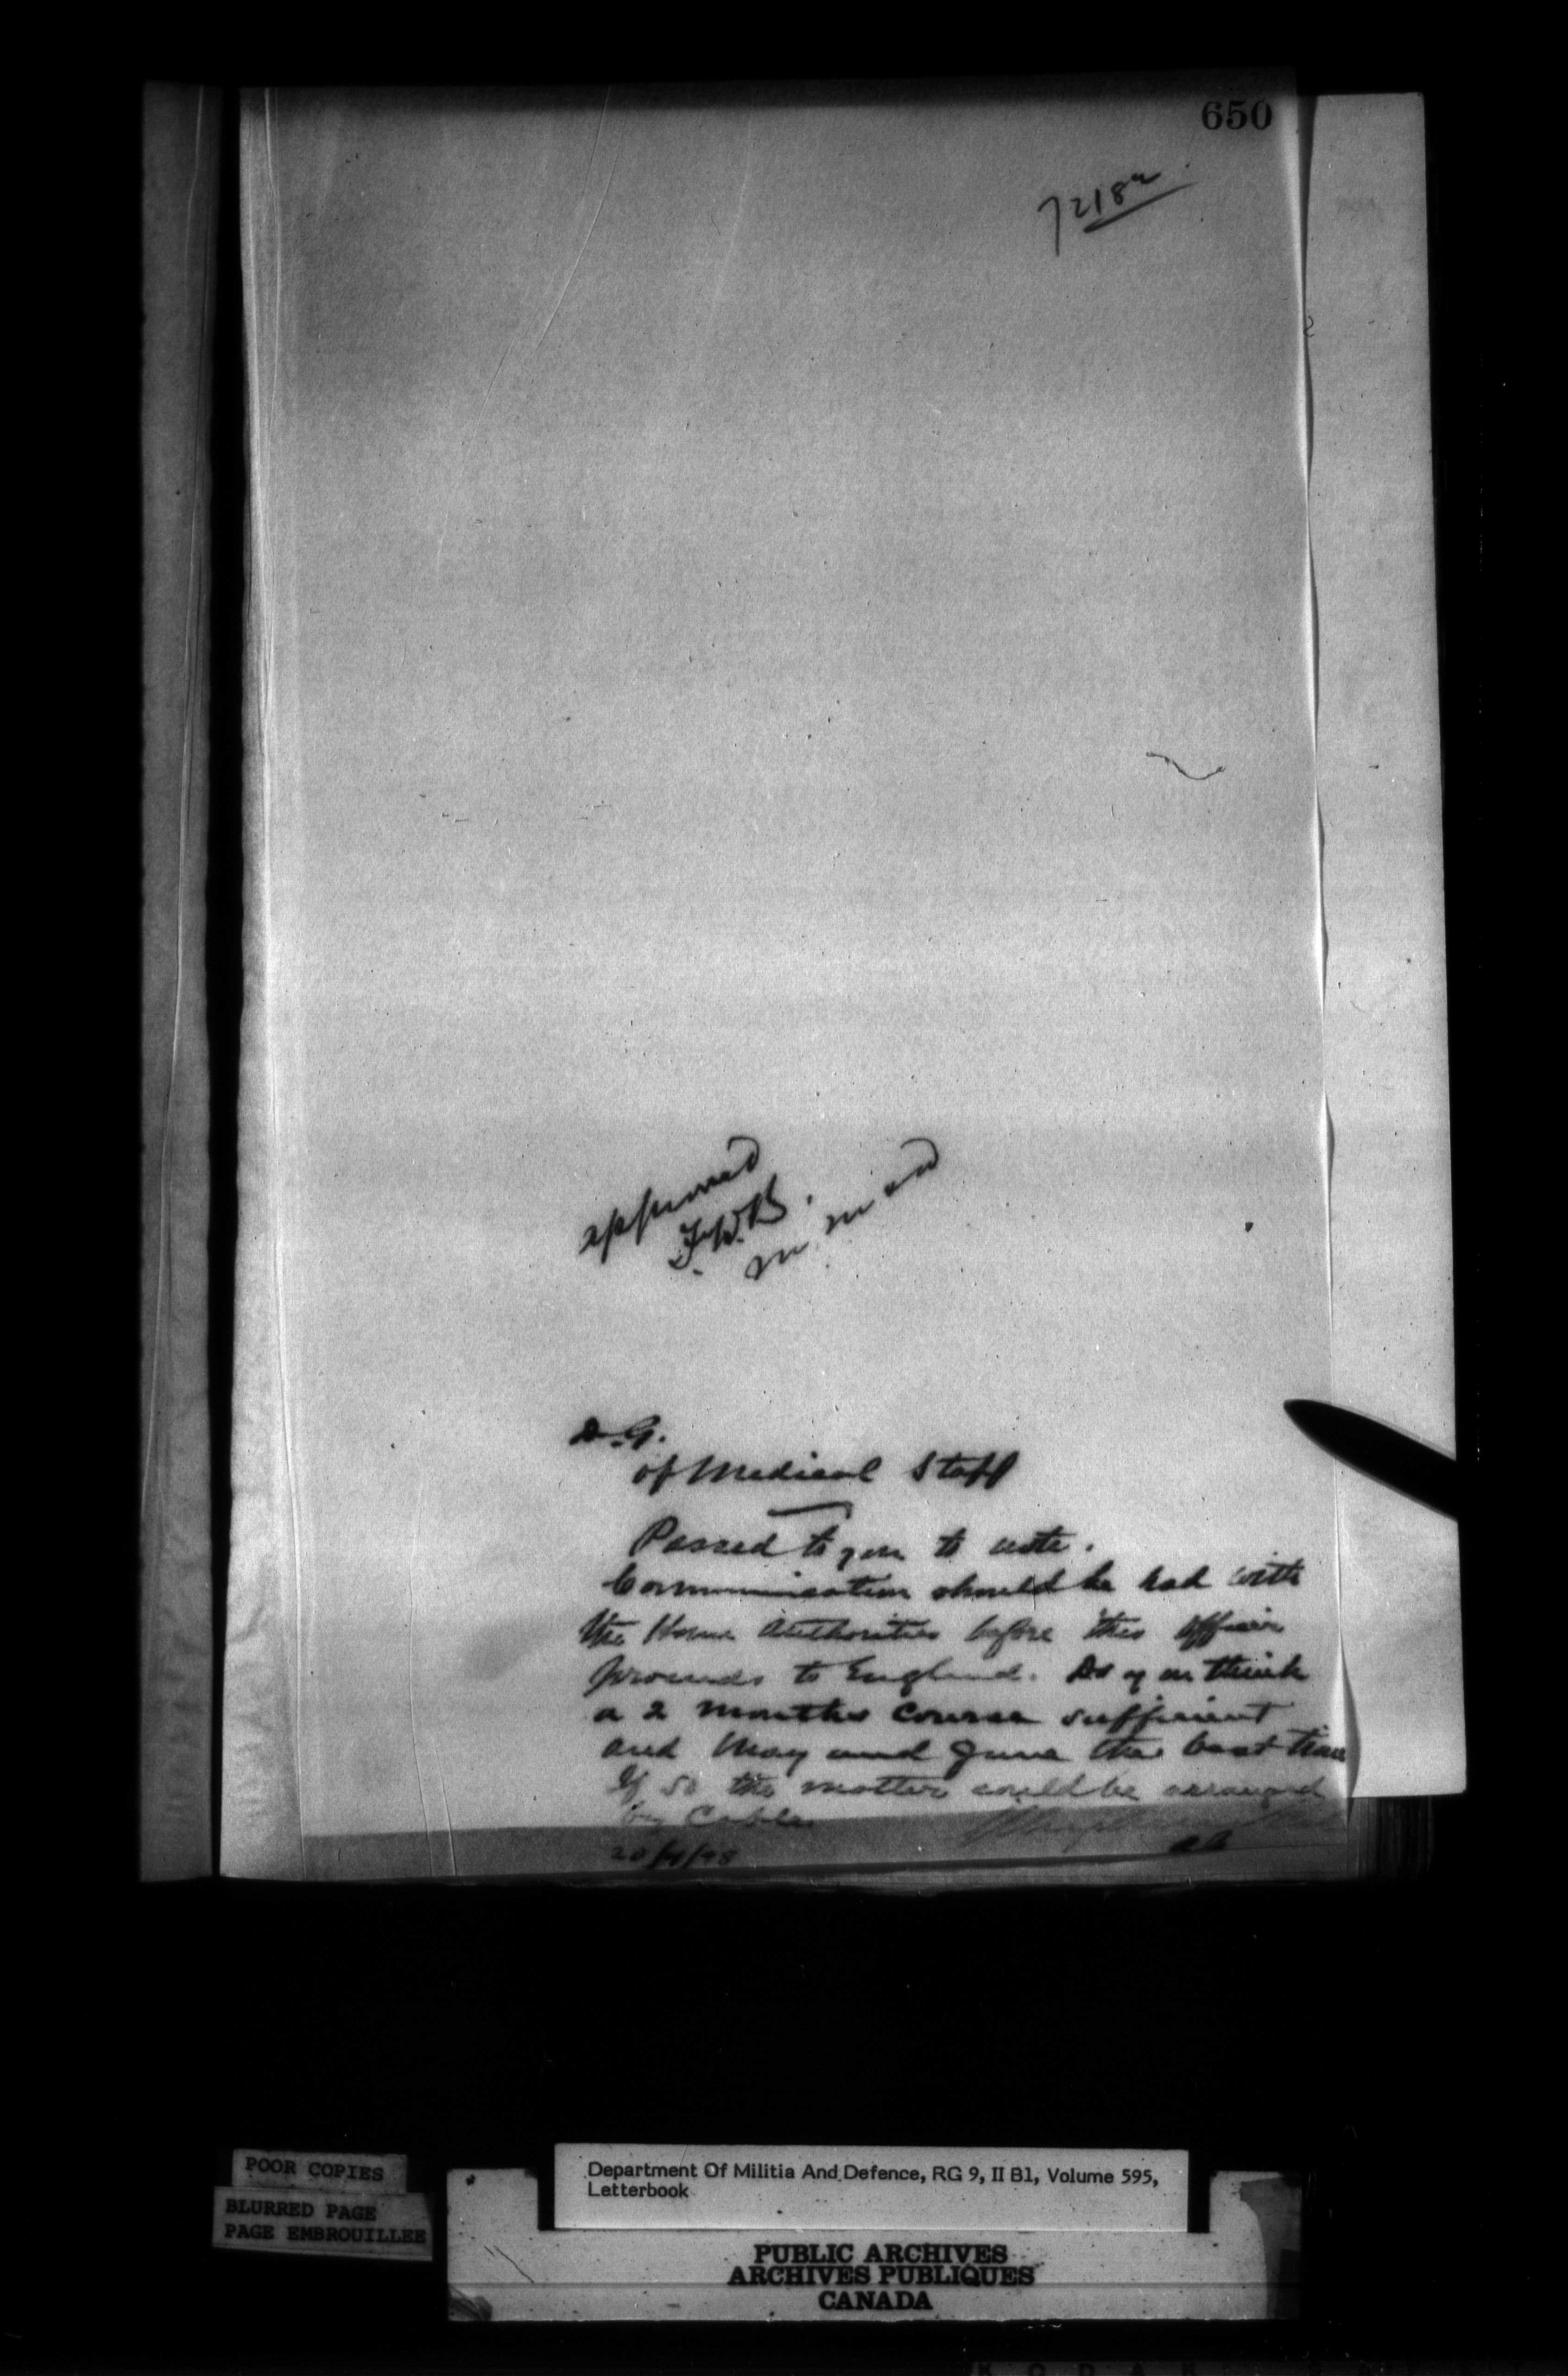 650
72182
approved
F.W.B.
M. M and D
D.G.
of Medical Staff
Passed to you to note.
Communication should be had with
the Home Authorities before this Officer
proceeds to England. Do you think
a 2 months course sufficient
and May and June the best time
If so the matter could be arranged
by Cable.
20/4/98
POOR COPIES
BLURRED PAGE
PAGE EMBROUILLEE
Department Of Militia And Defence, RG 9, II B1, Volume 595,
Letterbook
PUBLIC ARCHIVES
ARCHIVES PUBLIQUES
CANADA